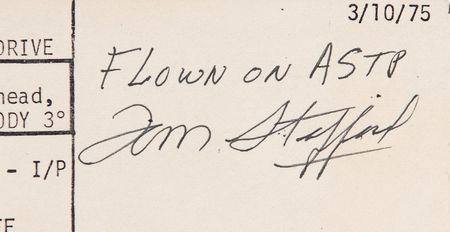 3/10/75
DRIVE
FLOWN ON ASTP
head,
ODY 3°
Tom Stafford
- I/P